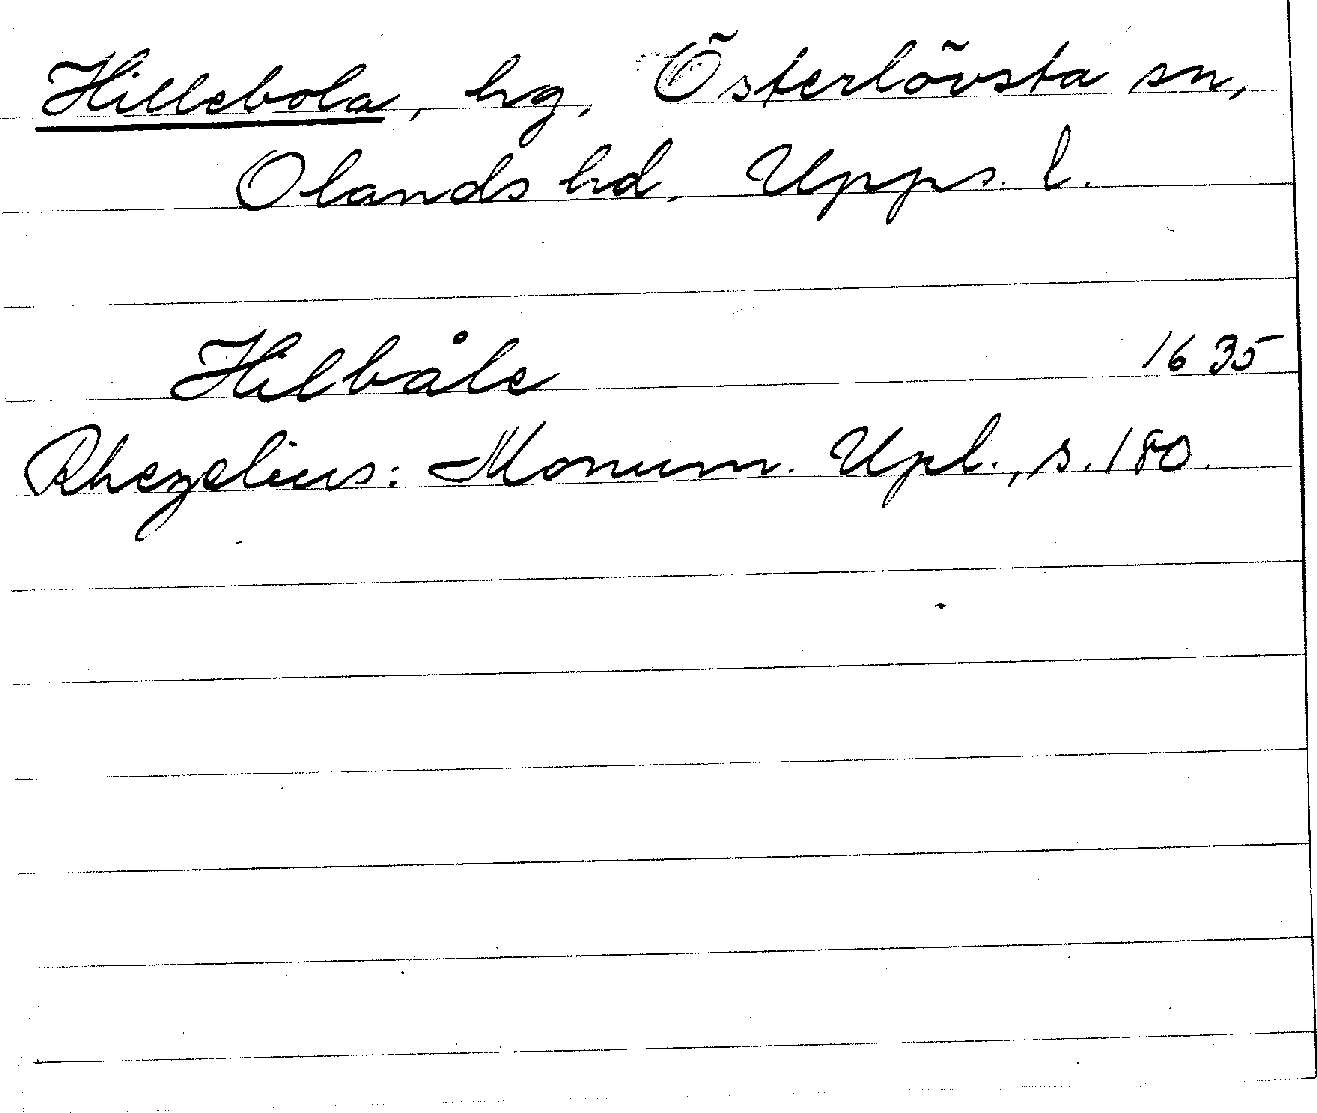 Hillebola, hg, Österlövsta sn,
Olands hd. Upps. l.
Hilbåle 1635
Rhezelius: Monum. Upl., s. 180.